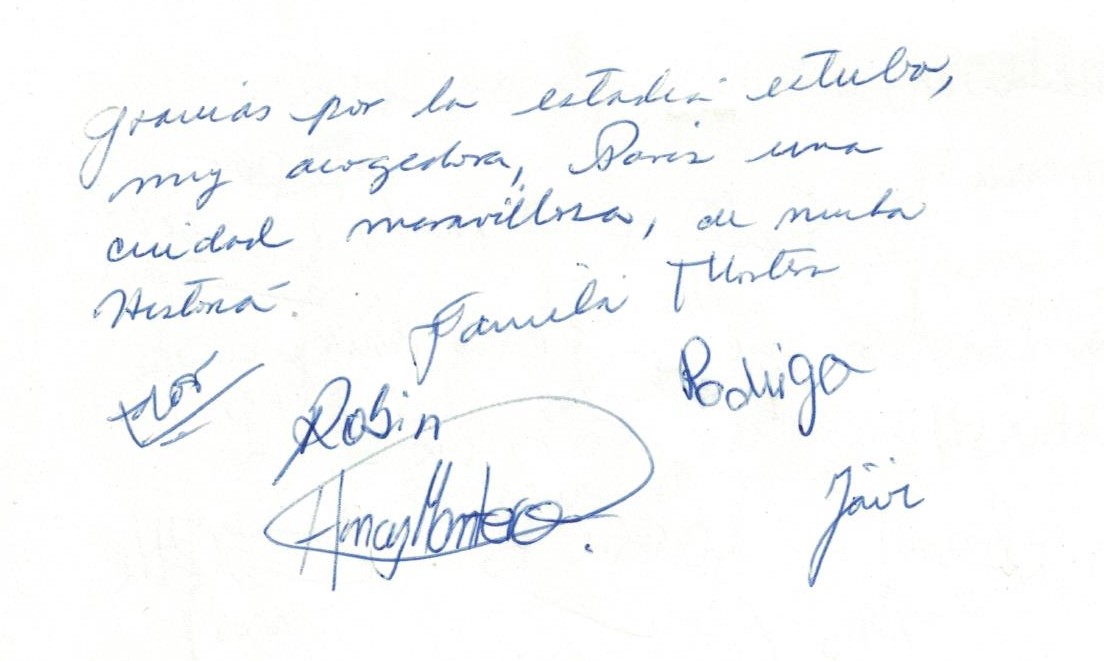 gracias por la estadia estubo,
muy acogedora, Paris una
cuidad maravillosa, de mucha
Historia.
Familia
Robin
Rodrigo
Montero
Javi